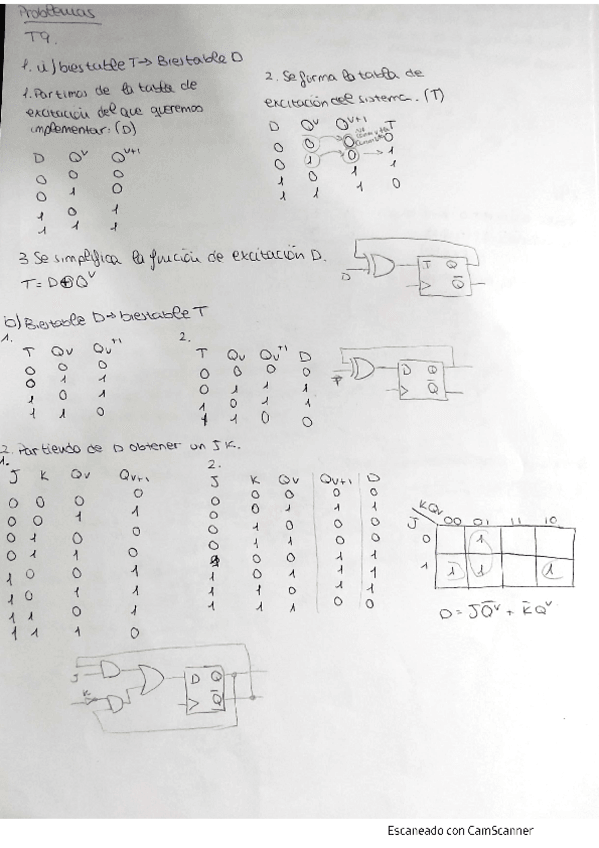 Problemas
T9.
1. a) biestable T → Biestable D
1. Partimos de la tabla de
excitación del que queremos
implementar: (D)
D Qᵛ Qᵛ⁺¹
0 0 0
0 1 0
1 0 1
1 1 1
2. Se forma la tabla de
excitación del sistema. (T)
D Qᵛ Qᵛ⁺¹ T
0 0 0 0
0 1 0 1
1 0 1 1
1 1 1 0
3 Se simplifica la función de excitación D.
T = D⊕Qᵛ
D
T Q
Q̄
b) Biestable D → biestable T
1.
T Qv Qv⁺¹
0 0 0
0 1 1
1 0 1
1 1 0
2.
T Qv Qv⁺¹ D
0 0 0 0
0 1 1 1
1 0 1 1
1 1 0 0
T
D Q
Q̄
2. Partiendo de D obtener un JK.
1.
J K Qv Qv+1
0 0 0 0
0 0 1 1
0 1 0 0
0 1 1 0
1 0 0 1
1 0 1 1
1 1 0 1
1 1 1 0
2.
J K Qv Qv+1 D
0 0 0 0 0
0 0 1 1 1
0 1 0 0 0
0 1 1 0 0
1 0 0 1 1
1 0 1 1 1
1 1 0 1 1
1 1 1 0 0
KQv
J 00 01 11 10
0 1
1 1 1 1
D = JQ̄ᵛ + K̄Qᵛ
J
K
D Q
Q̄
Escaneado con CamScanner